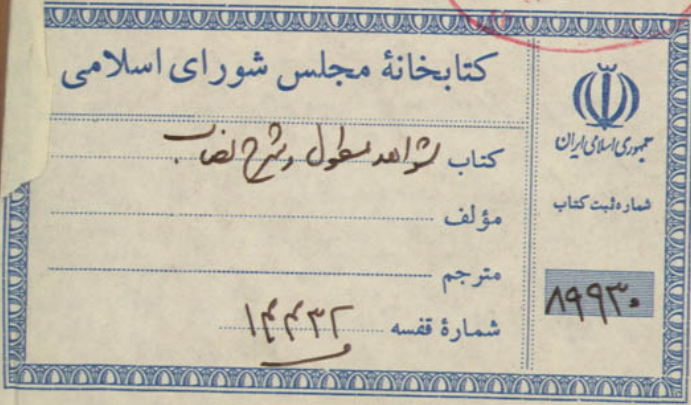 کتابخانهٔ مجلس شورای اسلامی
کتاب شواهد مطول و شرح نصاب
مؤلف
مترجم
شمارهٔ قفسه ۱۴۴۳۲
جمهوری اسلامی ایران
شماره ثبت کتاب
۸۹۹۳۰